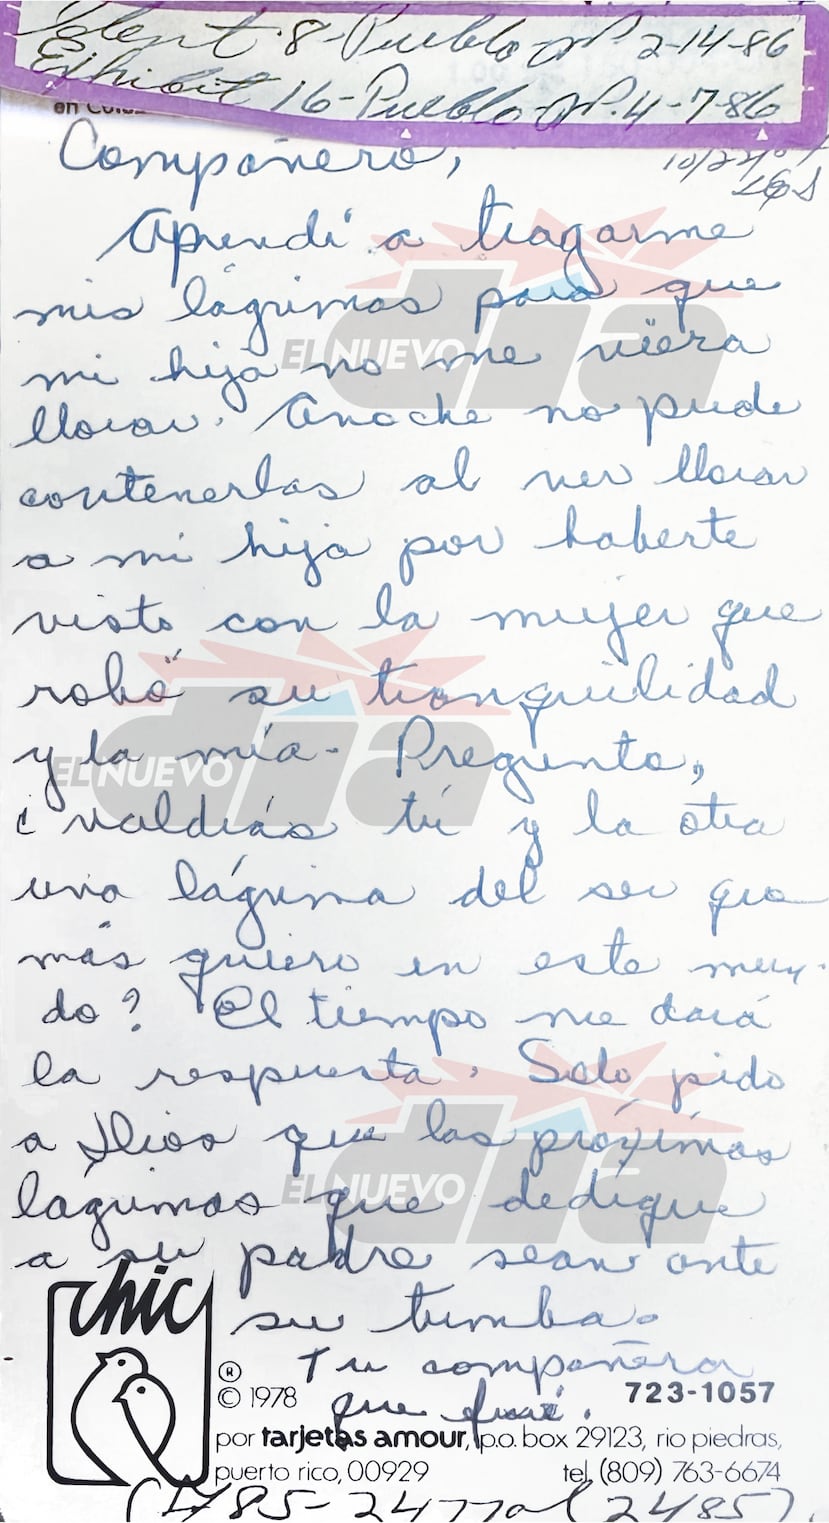 Ident. 8-Pueblo 2-14-86
Exhibit 16-Pueblo 4-7-86
Compañero,
Aprendí a tragarme
mis lágrimas para que
mi hija no me viera
llorar. Anoche no pude
contenerlas al ver llorar
a mi hija por haberte
visto con la mujer que
robó su tranquilidad
y la mía. Pregunto,
¿valdrás tú y la otra
una lágrima del ser que
más quiero en este mun-
do? El tiempo me dará
la respuesta. Solo pido
a Dios que las próximas
lágrimas que dedique
a su padre sean ante
su tumba.
Tu compañera
que fuí.
chic
®
© 1978
723-1057
por tarjetas amour, p.o. box 29123, rio piedras,
puerto rico, 00929
tel. (809) 763-6674
EL NUEVO día
EL NUEVO día
EL NUEVO día